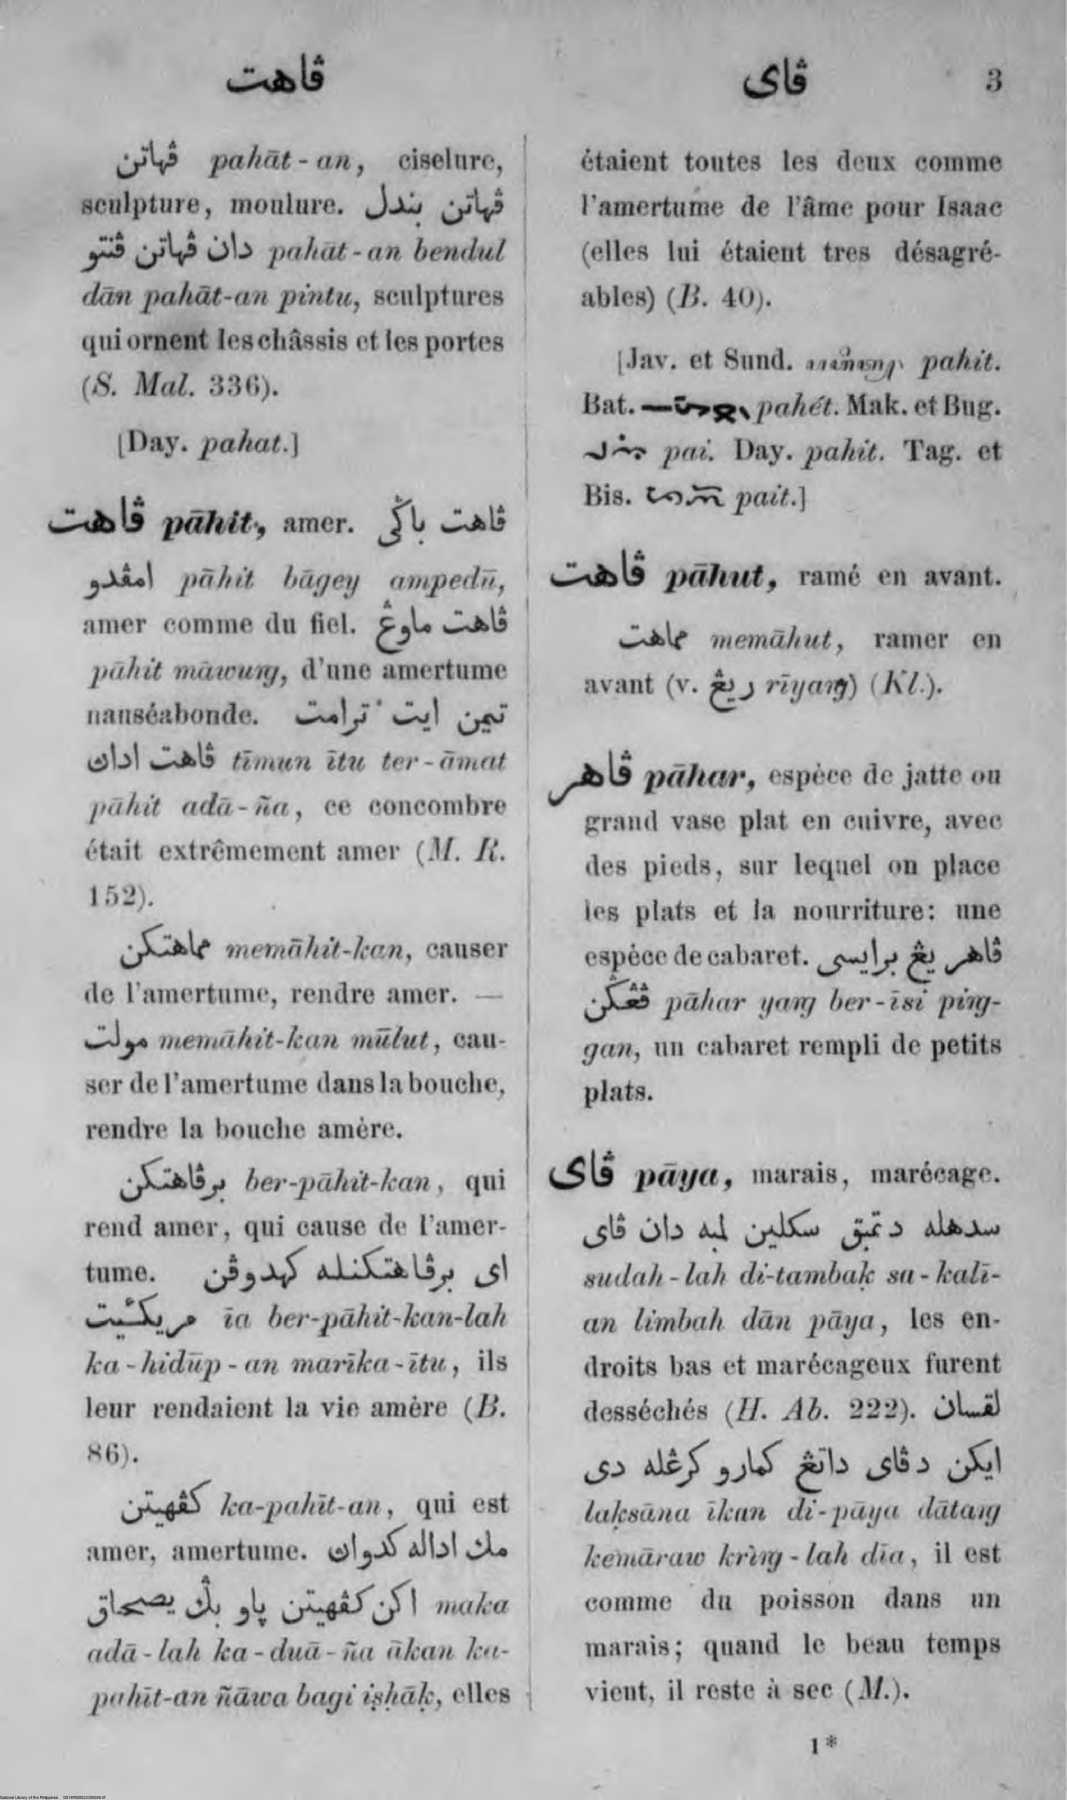 ڤاهت
ڤاى
3
ڤهاتن pahāt-an, ciselure,
sculpture, moulure. ڤهاتن بندل
دان ڤهاتن ڤنتو pahāt-an bendul
dān pahāt-an pintu, sculptures
qui ornent les châssis et les portes
(S. Mal. 336).
[Day. pahat.]
ڤاهت pāhit, amer. ڤاهت باڬي
امڤدو pāhit bāgey ampedū,
amer comme du fiel. ڤاهت ماوڠ
pāhit māwuṛg, d'une amertume
nauséabonde. تيمن ايت ترامت
ڤاهت اداڽ tīmun ītu ter-āmat
pāhit adā-ña, ce concombre
était extrêmement amer (M. R.
152).
مماهتكن memāhit-kan, causer
de l'amertume, rendre amer. —
مولت memāhit-kan mūlut, cau-
ser de l'amertume dans la bouche,
rendre la bouche amère.
برڤاهتكن ber-pāhit-kan, qui
rend amer, qui cause de l'amer-
tume. اى برڤاهتكنله كهدوڤن
مريكئيت īa ber-pāhit-kan-lah
ka-hidūp-an marīka-ītu, ils
leur rendaient la vie amère (B.
86).
كڤهيتن ka-pahīt-an, qui est
amer, amertume. مك اداله كدواڽ
اكن كڤهيتن ڽاو بڬي يصحاق maka
adā-lah ka-duā-ña ākan ka-
pahīt-an ñāwa bagi iṣḥāḳ, elles
étaient toutes les deux comme
l'amertume de l'âme pour Isaac
(elles lui étaient tres désagré-
ables) (B. 40).
[Jav. et Sund. pahit.
Bat. pahét. Mak. et Bug.
pai. Day. pahit. Tag. et
Bis. pait.]
ڤاهت pāhut, ramé en avant.
مماهت memāhut, ramer en
avant (v. ريڠ rīyaṛg) (Kl.).
ڤاهر pāhar, espèce de jatte ou
grand vase plat en cuivre, avec
des pieds, sur lequel on place
les plats et la nourriture: une
espèce de cabaret. ڤاهر يڠ برايسى
ڤڠڬن pāhar yaṛg ber-īsi piṛg-
gan, un cabaret rempli de petits
plats.
ڤاى pāya, marais, marécage.
سدهله دتمبق سكلين لمبه دان ڤاى
sudah-lah di-tambaḳ sa-kalī-
an limbah dān pāya, les en-
droits bas et marécageux furent
desséchés (H. Ab. 222). لقسان
ايكن دڤاى داتڠ كمارو كرڠله دى
laḳsāna īkan di-pāya dātaṛg
kemāraw krìṛg-lah dīa, il est
comme du poisson dans un
marais; quand le beau temps
vient, il reste à sec (M.).
1*